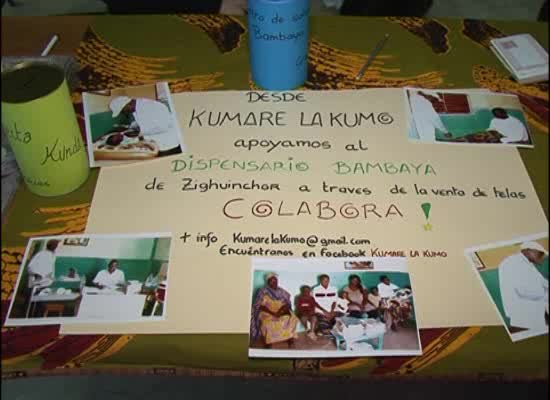 DESDE
KUMARE LA KUMO
apoyamos al
DISPENSARIO BAMBAYA
de Zighuinchor a traves de la venta de telas
COLABORA!
+ info KumarelaKumo@gmail.com
Encuéntranos en Facebook KUMARE LA KUMO
Bambaya
Kunda